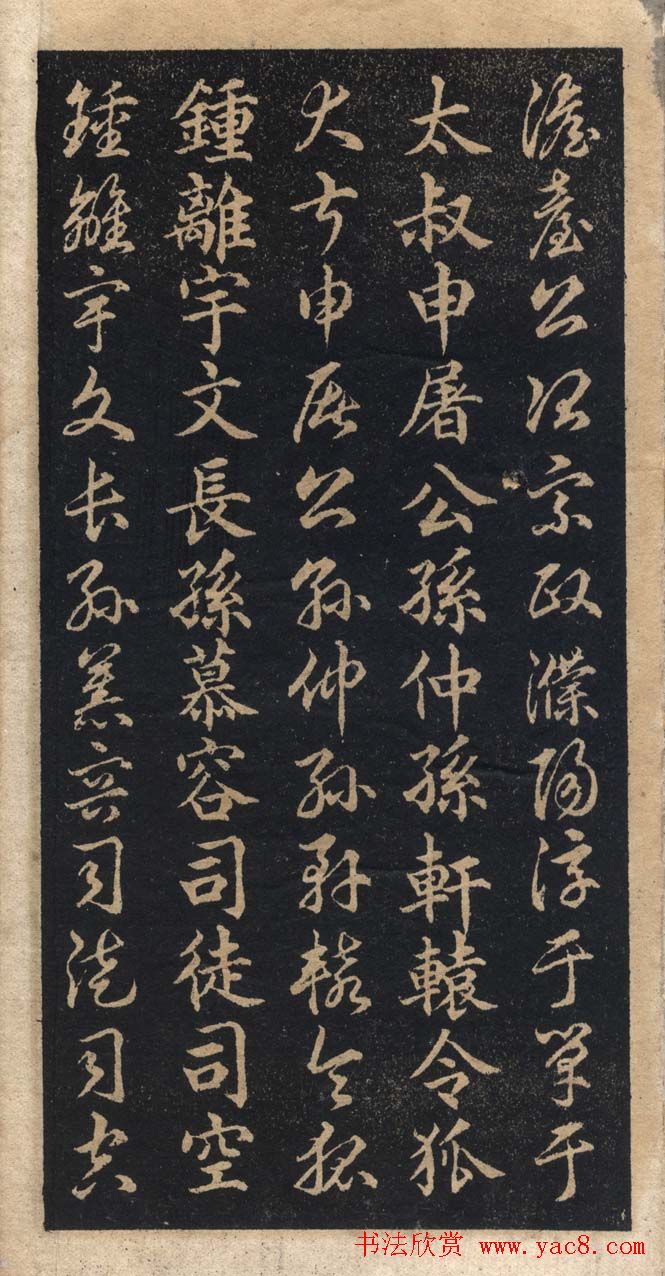 澹臺公冶宗政濮陽淳于單于
太叔申屠公孫仲孫軒轅令狐
太叔申屠公孫仲孫軒轅令狐
鍾離宇文長孫慕容司徒司空
鍾離宇文長孫慕容司徒司空
书法欣赏 www.yac8.com